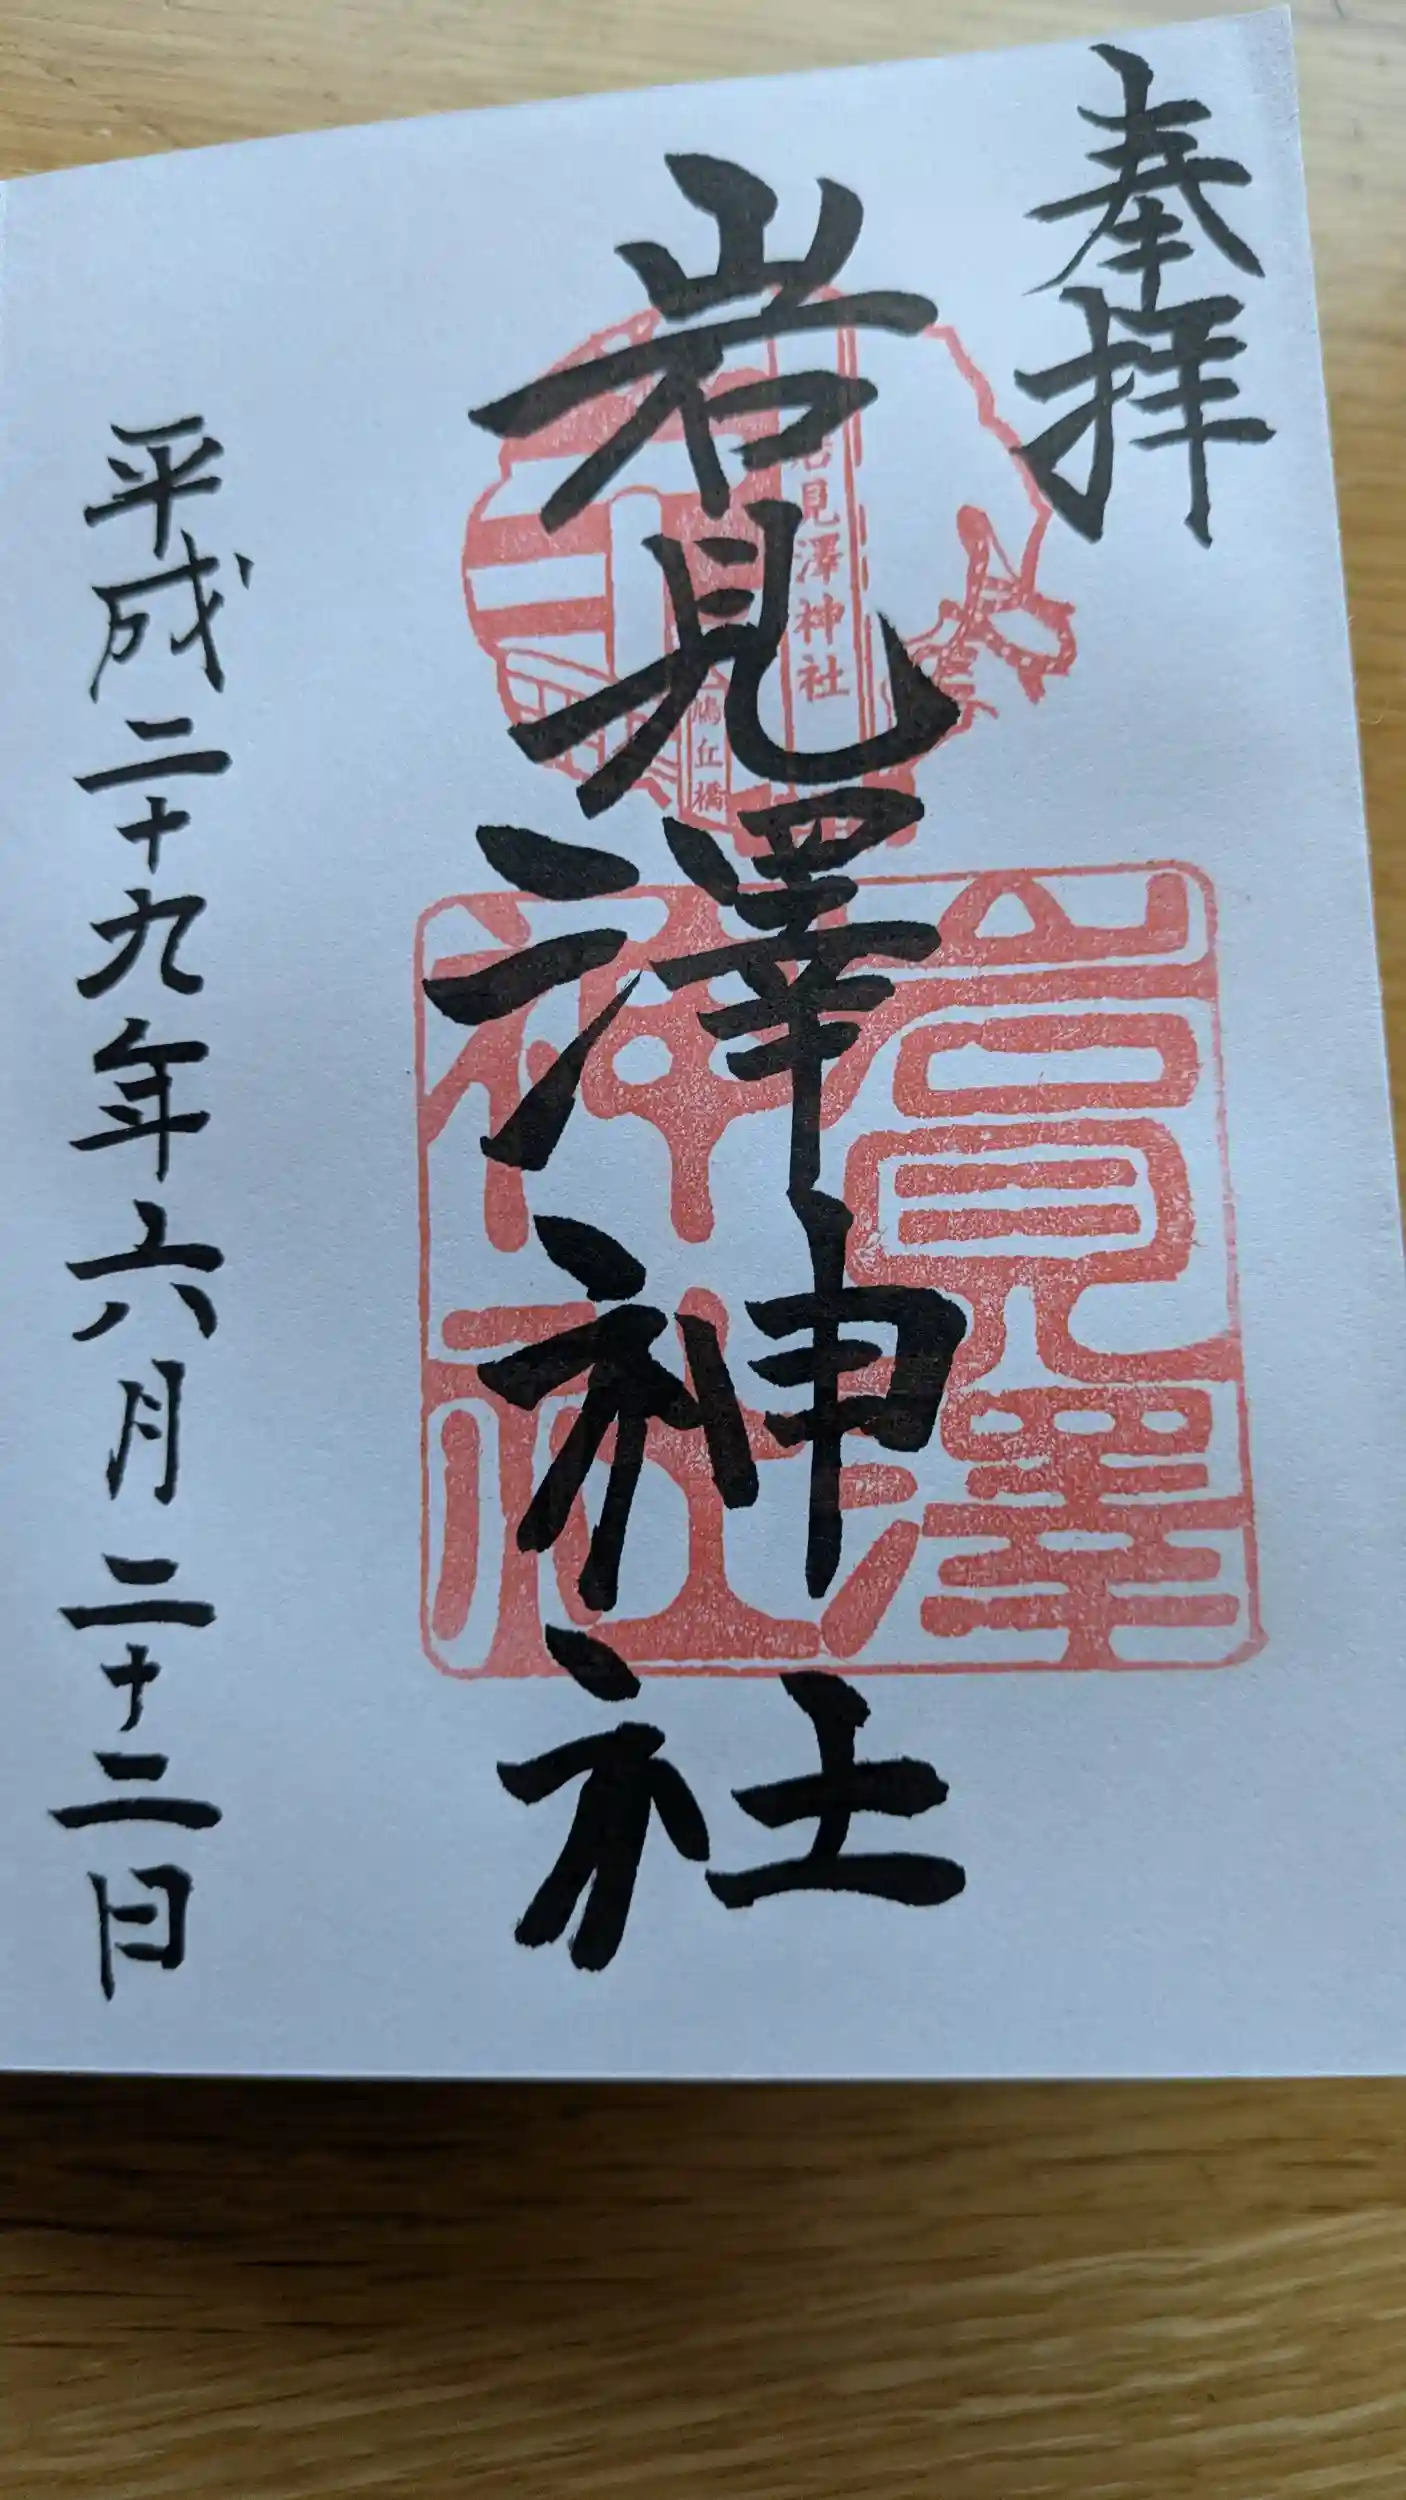 奉拝
岩見澤神社
岩見澤神社
鳩丘橋
岩見澤
神社
平成二十九年六月二十二日